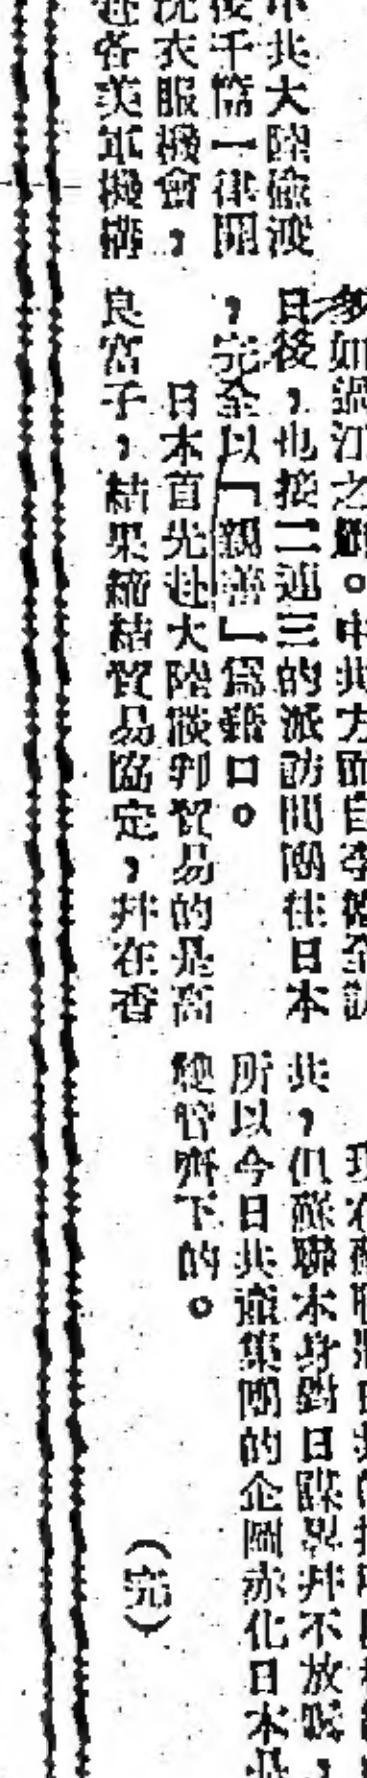 中共大陸偷渡
後千篇一律開
洗衣服機會，
赴各美軍機構
多如過江之鯽。中共方面自李德全訪
日後，也接二連三的派訪問團往日本
，完全以「親善」爲藉口。
日本首先赴大陸談判貿易的是高
良富子，結果締結貿易協定，幷在香
共，但蘇聯本身對日諜界幷不放鬆，
所以今日共產集團的企圖赤化日本是
雙管齊下的。
（完）